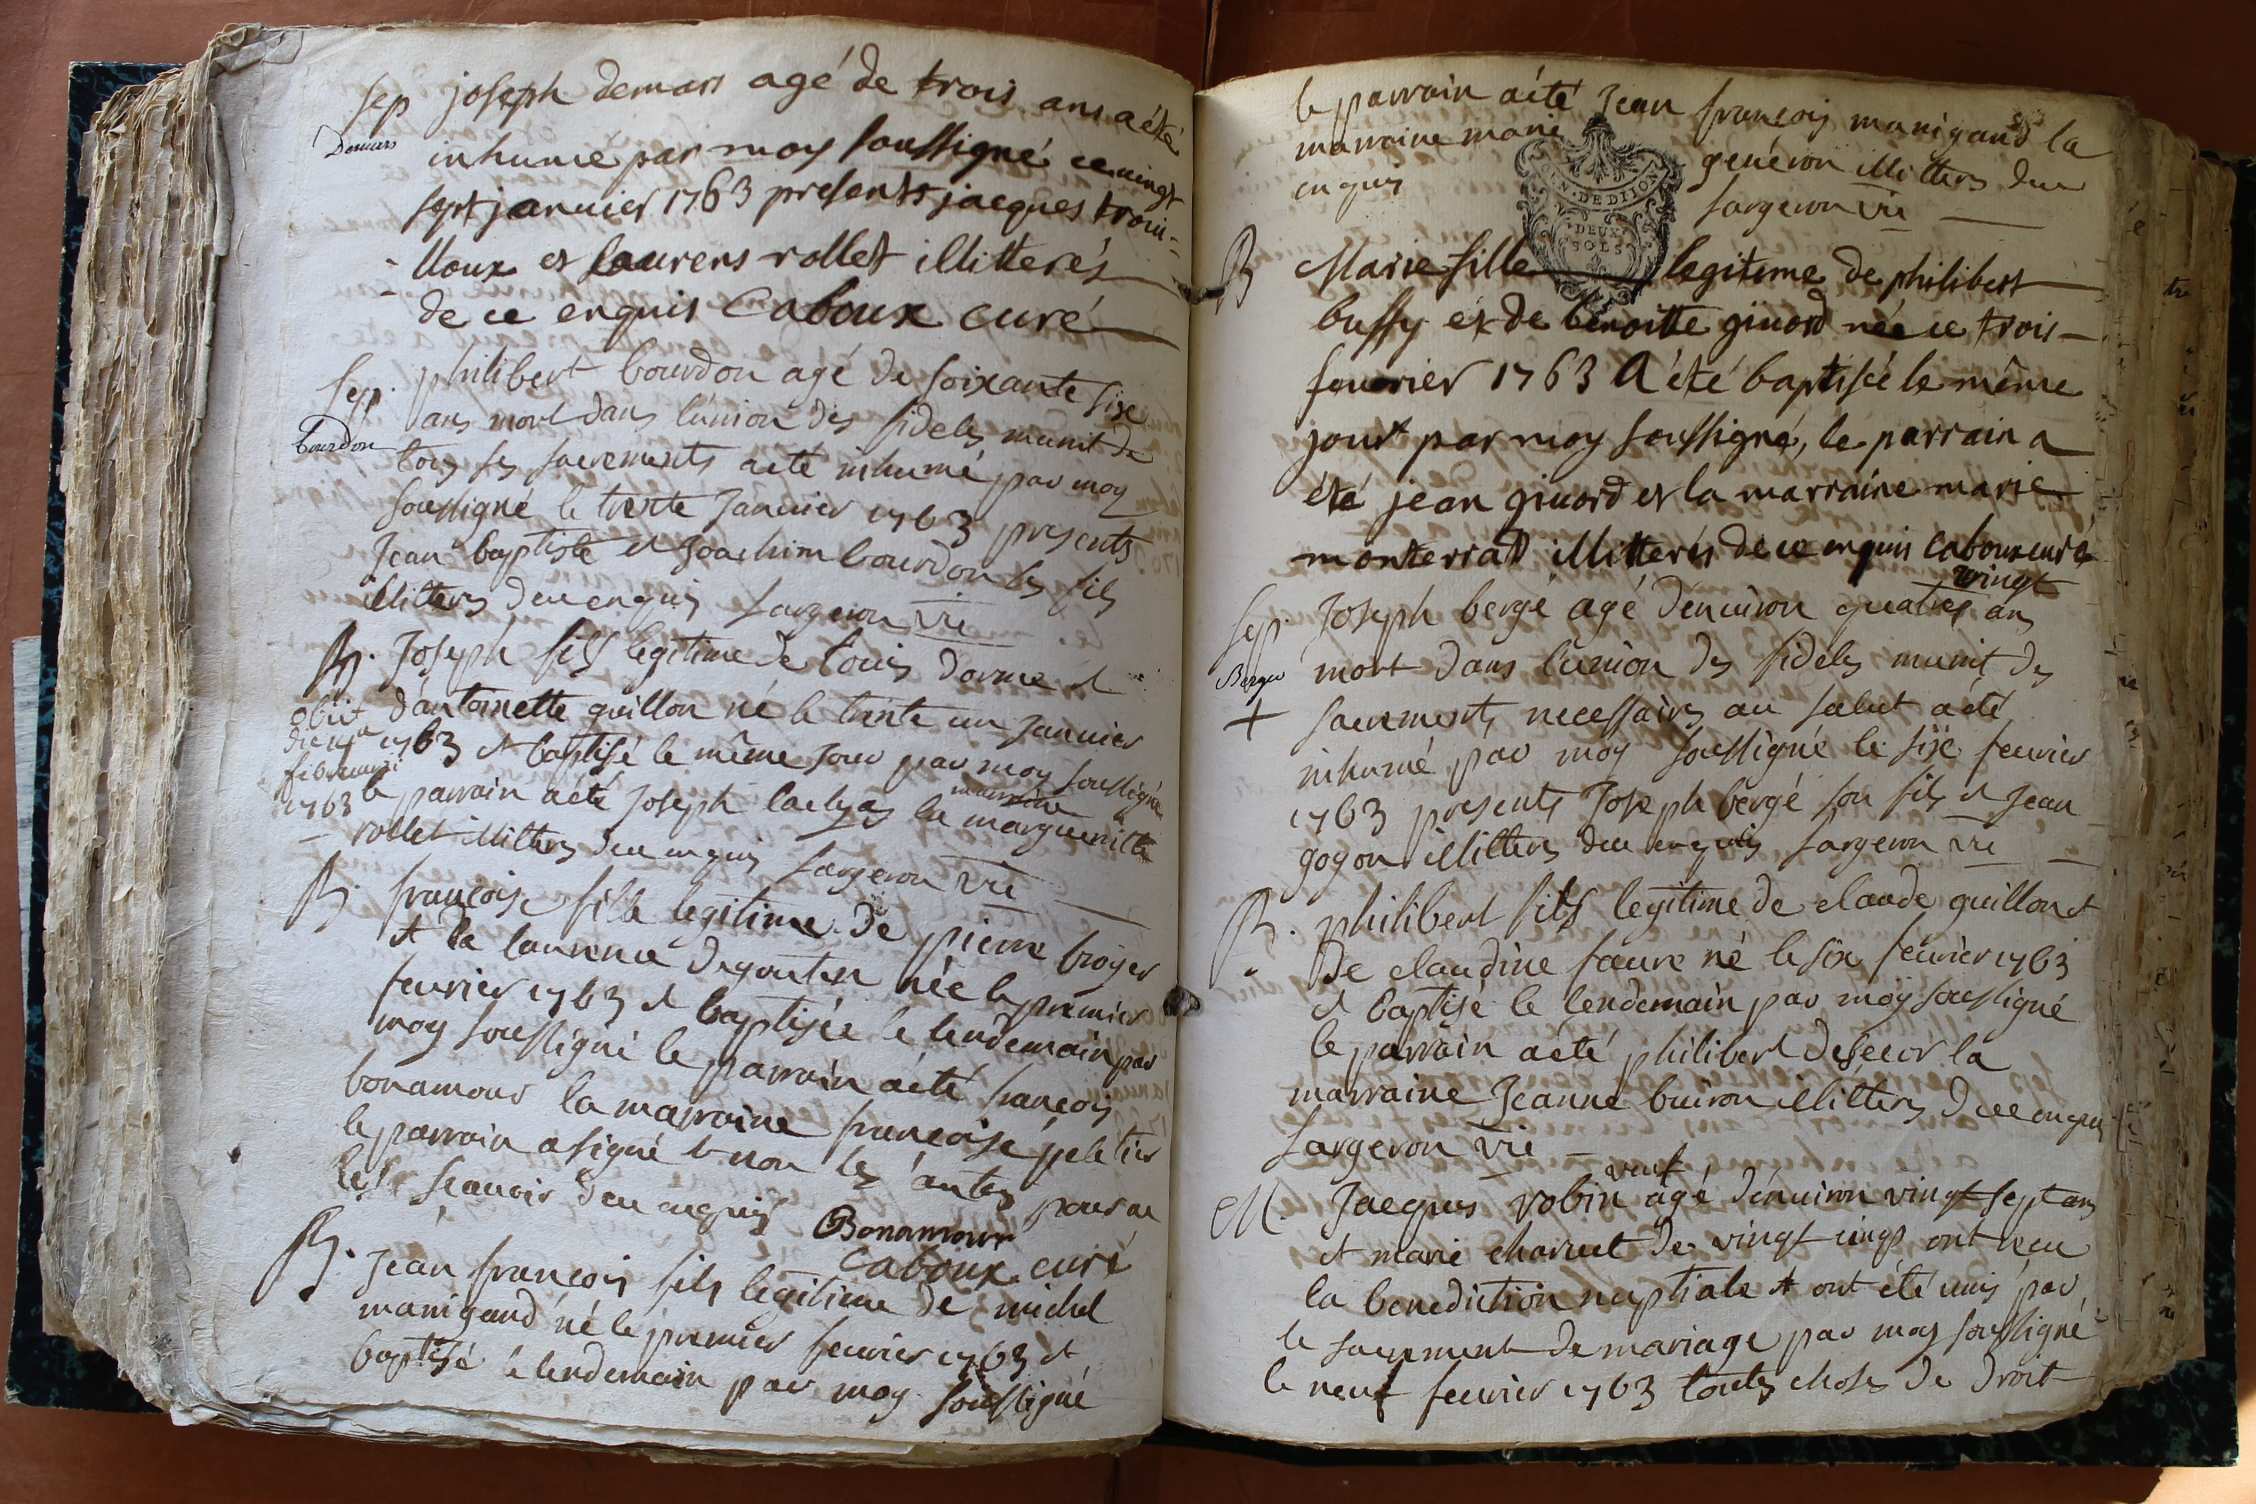 sep joseph demars agé de trois ans a été
Demars
inhumé par moy soussigné ce vingt
sept janvier 1763 presents jacques trouil-
-loux et laurens rollet illitterés
de ce enquis Caboux curé
sep. philibert bourdon agé de soixante sixe
ans mort dans lunion des fideles munit de
bourdon
tous ses sacrements a eté inhumé par moy
soussigné le trente Janvier 1763 presents
Jean baptiste et Joachim bourdon ses fils
illitters de ce enquis sargeron vic
B. Joseph fils legitime de Louis dorme et
d'antoinette guillon né le trente un Janvier
obiit
1763 et baptisé le même jour par moy soussigné
februarii
1763
marraine
le parrain a été Joseph la margueritte
rollet illitters de ce enquis sargeron vic
B. françoise fille legitime de pierre broyer
et de laurence degoutte née le premier
fevrier 1763 et baptisée le lendemain par
moy soussigné le parrain a été françois
bonamour la marraine françoise peletier
le parrain a signé et non les autres pour ne
le sçavoir de ce enquis Bonamour
Caboux curé
B. Jean françois fils legitime de michel
manigand né le premier fevrier 1763 et
baptisé le lendemain par moy soussigné
le parrain a été Jean françois manigand la
marraine marie genéron illitters de ce
enquis sargeron vic
GEN. DE DIJON
DEUX
SOLS
B Marie fille legitime de philibert
buffy et de benoitte givord née ce trois
fevrier 1763 A été baptisée le même
jour par moy soussigné, le parrain a
été jean givord et la marraine marie
monterrat illitterés de ce enquis Caboux curé
vingt
sep. Joseph bergé agé d'environ quatres ans
Berger
mort dans lunion des fideles munit des
+
sacrements necessaires au salut a été
inhumé par moy soussigné le sixe fevrier
1763 presents Joseph bergé son fils et Jean
gogon illitters de ce enquis sargeron vic
B. philibert fils legitime de claude guillon et
de claudine faure né le six fevrier 1763
et baptisé le lendemain par moy soussigné
le parrain a été philibert desecor la
marraine Jeanne buiron illitters de ce enquis
sargeron vic
veuf
M. Jacques robin agé d'environ vingt sept ans
et marie charvet de vingt cinqs ont reçu
la benediction nuptiale et ont été unis par
le sacrement de mariage par moy soussigné
le neuf fevrier 1763 toutes choses de droit